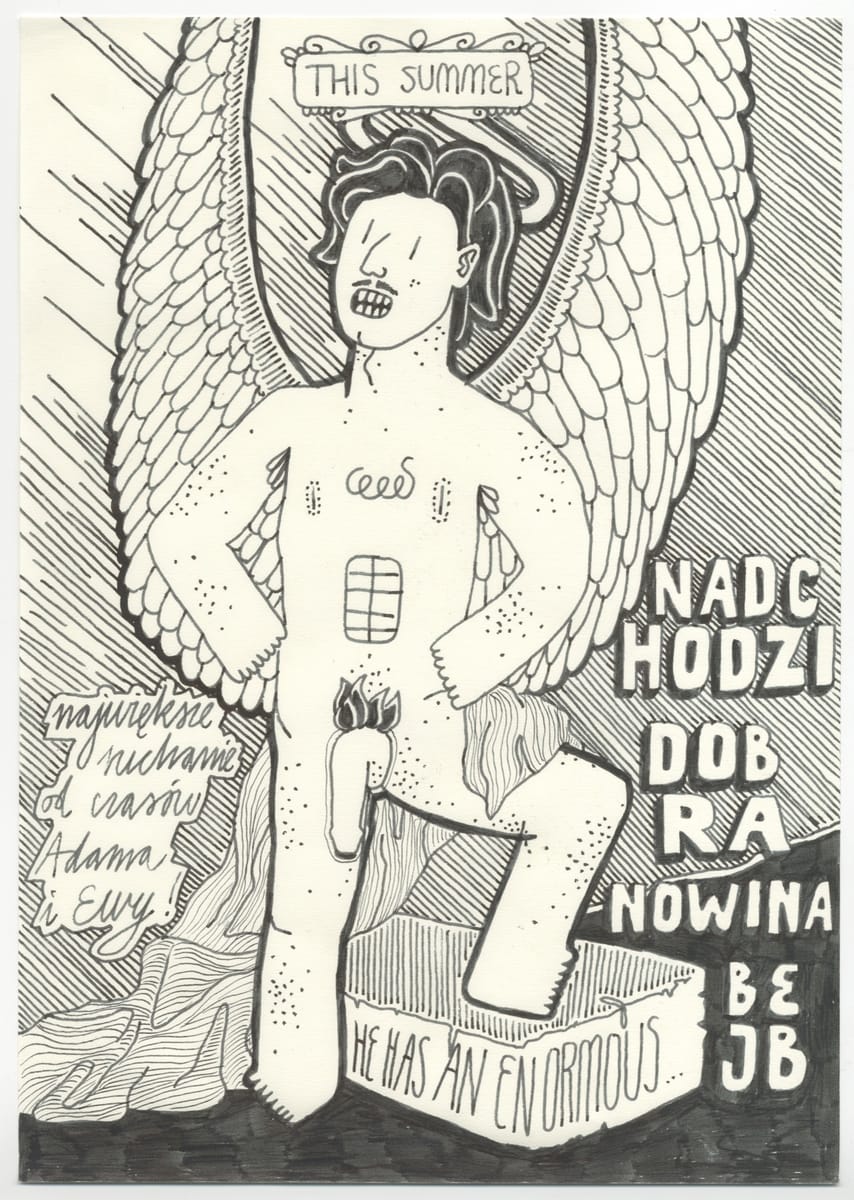 THIS SUMMER
NADC
HODZI
DOB
RA
NOWINA
BE
JB
największe
ruchanie
od czasów
Adama
i Ewy!
HE HAS AN ENORMOUS...